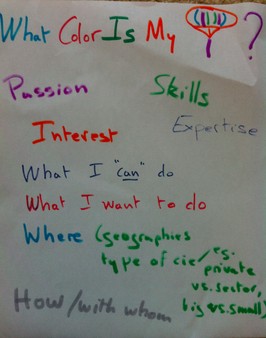 What Color Is My ?
Passion Skills
Interest Expertise
What I "can" do
What I want to do
Where (geographies
type of cie/ eg.
private
vs. sector,
big vs. small)
How/with whom